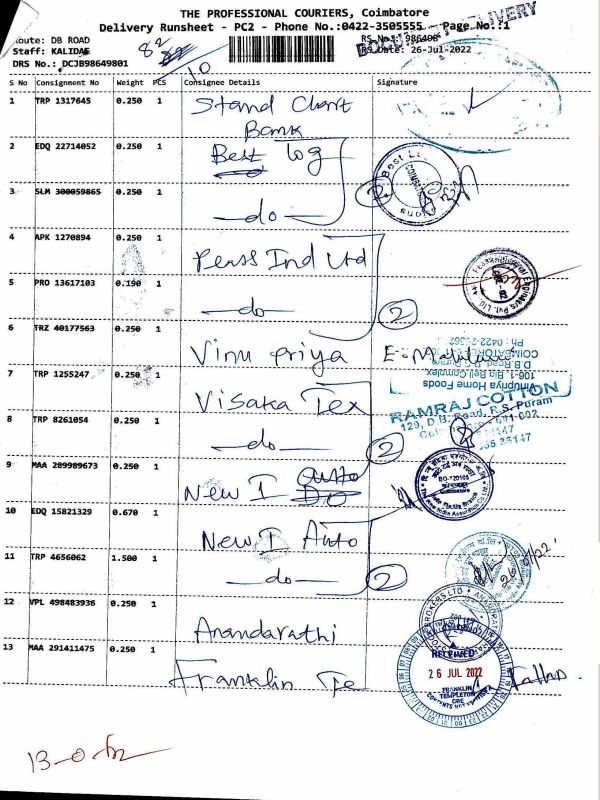 THE PROFESSIONAL COURIERS, Coimbatore
Delivery Runsheet - PC2 - Phone No.:0422-3505555 Page No.:1
Route: DB ROAD
Staff: KALIDAS
DRS No.: DCJB98649801
82
10
DELIVERY
RS No.: 986498
RS Date: 26-Jul-2022
S No Consignment No Weight PCS Consignee Details Signature
1 TRP 1317645 0.250 1 Stand Chart Bank
2 EDQ 22714052 0.250 1 Best log
3 SLM 300059865 0.250 1 -do- 2
4 APK 1270894 0.250 1 Perss Ind Ltd
5 PRO 13617103 0.190 1 -do- 2
6 TRZ 40177563 0.250 1 Vinu Priya
7 TRP 1255247 0.250 1 Visaka Tex
8 TRP 8261054 0.250 1 -do- 2
9 MAA 289989673 0.250 1 New I Auto
10 EDQ 15821329 0.670 1 New I Auto
11 TRP 4656062 1.500 1 -do- 2
12 VPL 498483936 0.250 1 Anandarathi
13 MAA 291411475 0.250 1 Franklin Te
Ph : 0422-
D.B.Road, R.S.Puram
106-1, Big Bell Complex
Home Foods
RAMRAJ COTTON
129, D.B. Road, R.S. Puram
BO-720103
RECEIVED
26 JUL 2022
FRANKLIN
TEMPLETON
CBE
CONTENTS NOT VERIFIED
13-0-